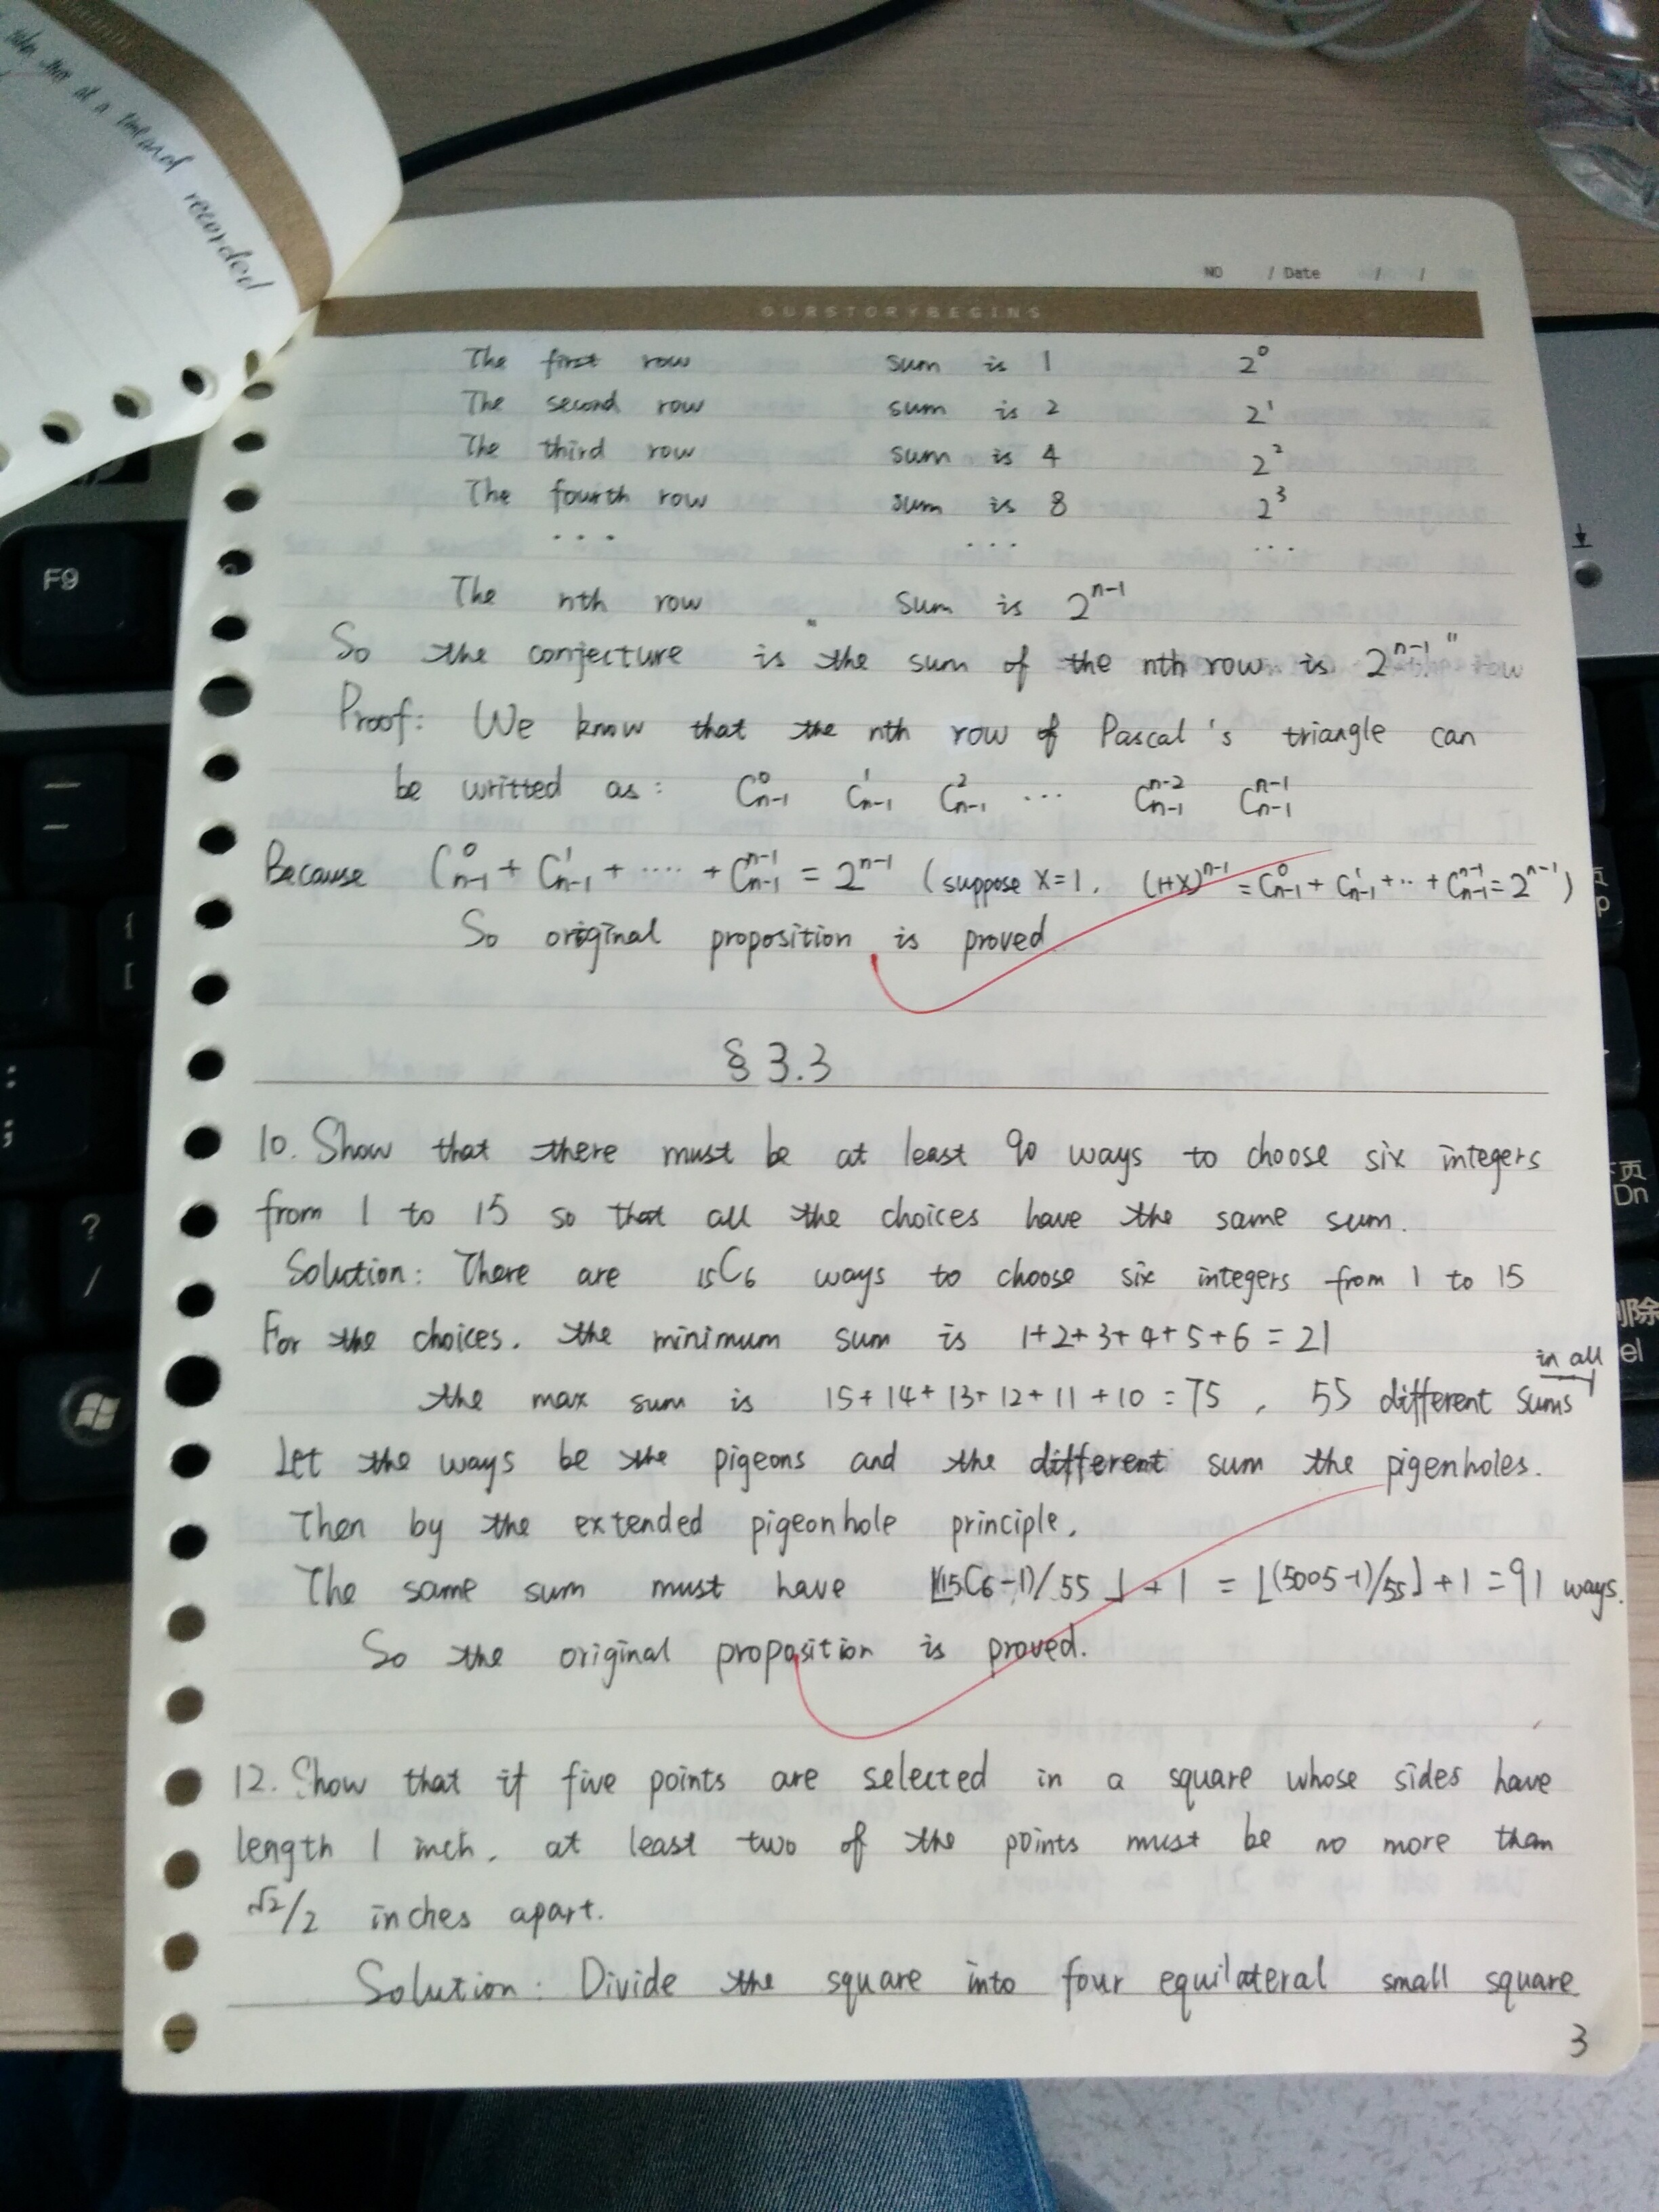 recorded
NO / Date / /
OURSTORYBEGINS
The first row sum is 1 2⁰
The second row sum is 2 2¹
The third row sum is 4 2²
The fourth row sum is 8 2³
... ... ...
The nth row sum is 2ⁿ⁻¹
So the conjecture is "the sum of the nth row is 2ⁿ⁻¹"
Proof: We know that the nth row of Pascal's triangle can
be writted as: C⁰ₙ₋₁ C¹ₙ₋₁ C²ₙ₋₁ ... Cⁿ⁻²ₙ₋₁ Cⁿ⁻¹ₙ₋₁
Because C⁰ₙ₋₁ + C¹ₙ₋₁ + ···· + Cⁿ⁻¹ₙ₋₁ = 2ⁿ⁻¹ (suppose x=1, (1+x)ⁿ⁻¹ = C⁰ₙ₋₁ + C¹ₙ₋₁ + ·· + Cⁿ⁻¹ₙ₋₁ = 2ⁿ⁻¹)
So original proposition is proved
§ 3.3
10. Show that there must be at least 90 ways to choose six integers
from 1 to 15 so that all the choices have the same sum.
Solution: There are ₁₅C₆ ways to choose six integers from 1 to 15
For the choices. the minimum sum is 1+2+3+4+5+6 = 21
in all
the max sum is 15+14+13+12+11+10 = 75 , 55 different sums
Let the ways be the pigeons and the different sum the pigenholes.
Then by the extended pigeonhole principle,
The same sum must have ⌊(15C6-1)/55⌋+1 = ⌊(5005-1)/55⌋+1 = 91 ways.
So the original proposition is proved.
12. Show that if five points are selected in a square whose sides have
length 1 inch, at least two of the points must be no more than
√2/2 inches apart.
Solution: Divide the square into four equilateral small square
3
F9
?
/
;
:
{
[
页
Dn
删除
el